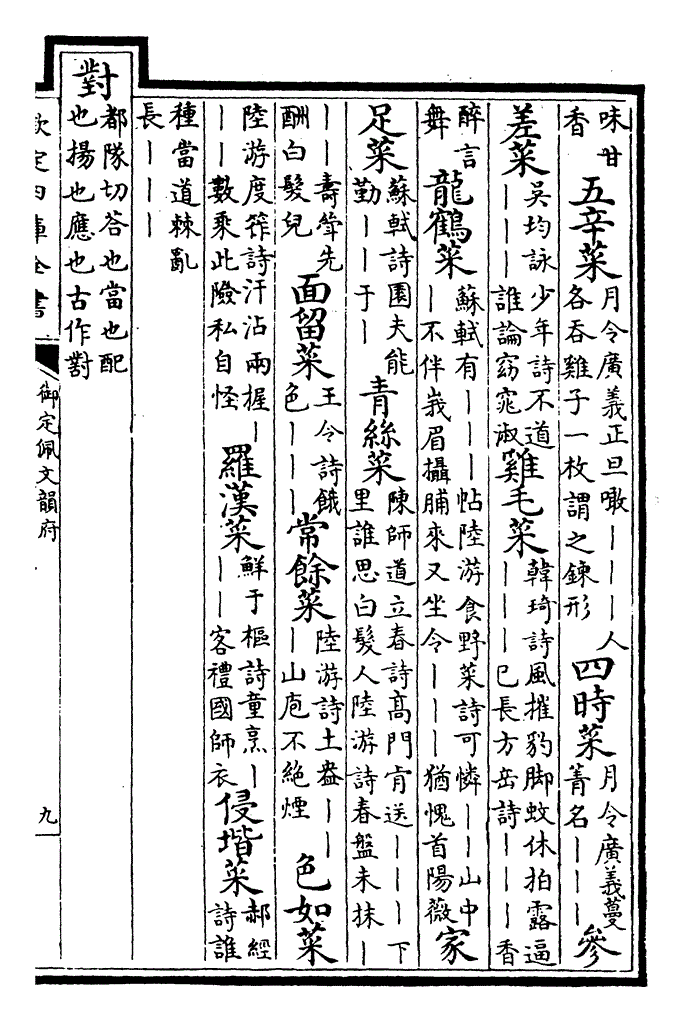 味甘
香
五辛菜
月令廣義正旦噉｜｜｜人
各吞雞子一枚謂之鍊形
四時菜
月令廣義蔓
菁名｜｜｜
參
差菜
吳均詠少年詩不道
｜｜｜誰論窈窕淑
雞毛菜
韓琦詩風摧豹脚蚊休拍露逼
｜｜｜已長方岳詩｜｜｜香
醉言
舞
龍鶴菜
蘇軾有｜｜｜帖陸游食野菜詩可憐｜｜山中
｜不伴峩眉攝脯來又坐令｜｜｜猶愧首陽薇
家
足菜
蘇軾詩園夫能
勤｜｜于｜
青絲菜
陳師道立春詩高門肯送｜｜｜下
里誰思白髮人陸游詩春盤未抹｜
｜｜壽觴先
酬白髮兒
面留菜
王令詩餓
色｜｜｜
常餘菜
陸游詩土盎｜｜
｜山庖不絶煙
色如菜
陸游度筰詩汗沾兩握｜
｜｜數乘此險私自怪
羅漢菜
鮮于樞詩童烹｜
｜｜客禮國師衣
侵堦菜
郝經
詩誰
種當道棘亂
長｜｜｜
對
都隊切答也當也配
也揚也應也古作對
欽定四庫全書
御定佩文韻府
九